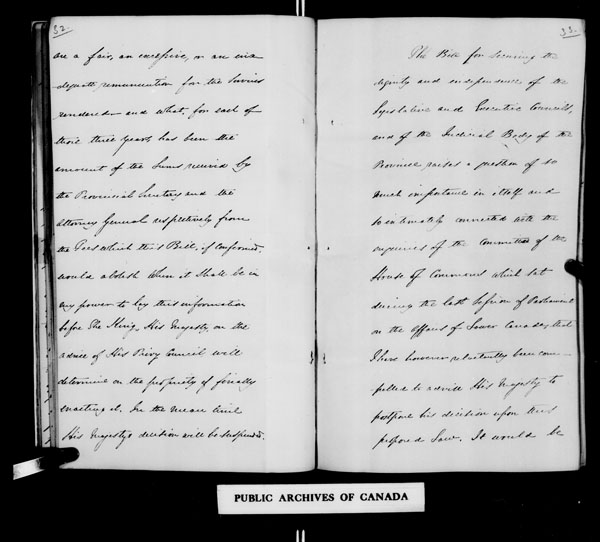 32.
are a fair, an excessive, or an ina-
dequate remuneration for the Services
rendered and what, for each of
those three years has been the
amount of the Sums received by
the Provincial Secretary and the
Attorney General respectively from
the Fees which this Bill, if confirmed,
would abolish When it shall be in
my power to lay this information
before The King, His Majesty on the
advice of His Privy Council will
determine on the propriety of finally
enacting it. In the mean time
His Majesty's decision will be suspended.
33.
The Bill for Securing the
dignity and independence of the
Legislative and Executive Councils,
and of the Judicial Body of the
Province raises a question of so
much importance in itself and
so intimately connected with the
inquiries of the Committee of the
House of Commons which sat
during the last Session of Parliament
on the Affairs of Lower Canada, that
I have however reluctantly been com-
pelled to advise His Majesty to
postpone his decision upon this
proposed Law. It would be
PUBLIC ARCHIVES OF CANADA